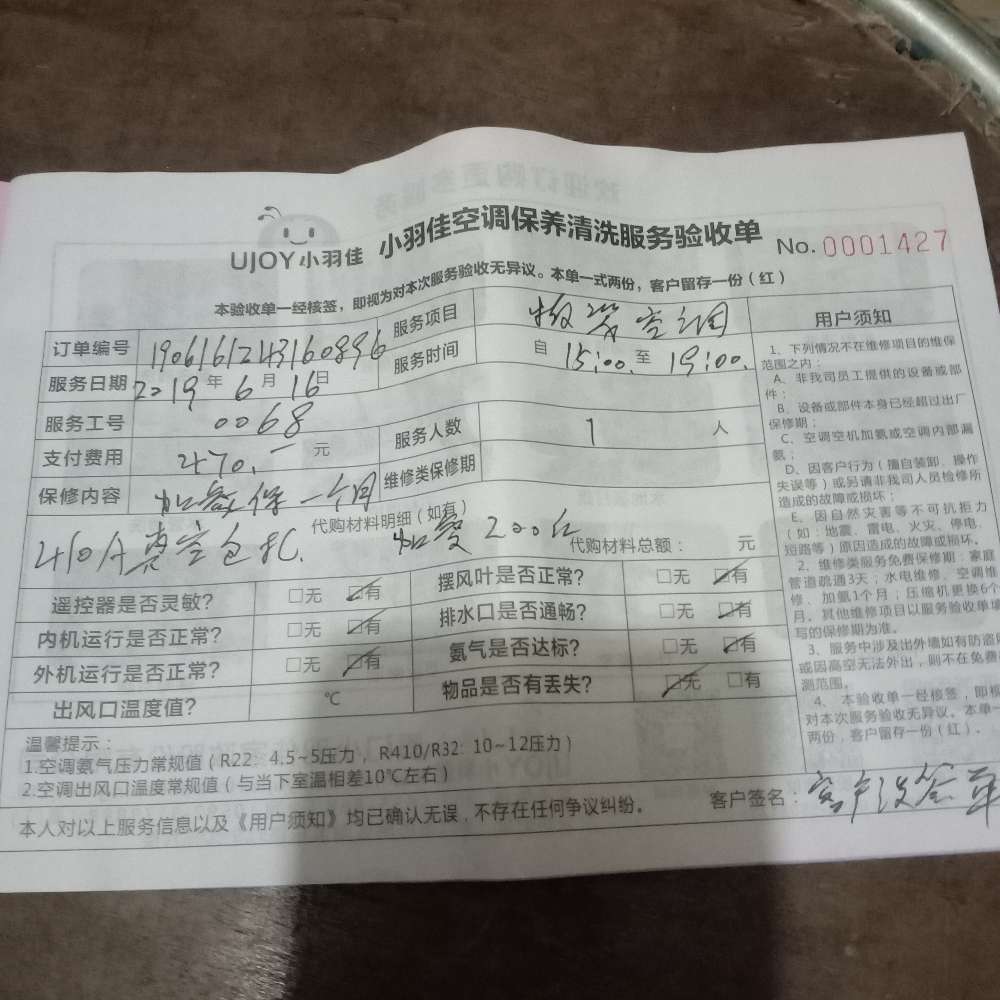 UJOY小羽佳 小羽佳空调保养清洗服务验收单 No. 0001427
本验收单一经核签，即视为对本次服务验收无异议。本单一式两份，客户留存一份（红）
订单编号 1906161243160896 服务项目 移装空调
服务日期 2019年6月16日 服务时间 自 15:00. 至 19:00.
服务工号 0068 服务人数 1 人
支付费用 470.一 元 维修类保修期
保修内容 加氨保一个月
代购材料明细（如有）
410A真空包扎. 加氨200元 代购材料总额： 元
遥控器是否灵敏？ □无 ☑有 摆风叶是否正常？ □无 ☑有
内机运行是否正常？ □无 ☑有 排水口是否通畅？ □无 ☑有
外机运行是否正常？ □无 ☑有 氨气是否达标？ □无 ☑有
出风口温度值？ ℃ 物品是否有丢失？ ☑无 □有
温馨提示：
1.空调氨气压力常规值（R22：4.5~5压力，R410/R32: 10~12压力）
2.空调出风口温度常规值（与当下室温相差10℃左右）
本人对以上服务信息以及《用户须知》均已确认无误，不存在任何争议纠纷。
客户签名：客户没签单
用户须知
1、下列情况不在维修项目的维保
范围之内：
A、非我司员工提供的设备或部
件；
B、设备或部件本身已经超过出厂
保修期；
C、空调空机加氨或空调内部漏
氨；
D、因客户行为（擅自装卸、操作
失误等）或另请非我司人员检修所
造成的故障或损坏；
E、因自然灾害等不可抗拒力
（如：地震、雷电、火灾、停电、
短路等）原因造成的故障或损坏。
2、维修类服务免费保修期：家庭
管道疏通3天；水电维修、空调维
修、加氨1个月；压缩机更换6个
月。其他维修项目以服务验收单填
写的保修期为准。
3、服务中涉及出外墙如有防盗
或因高空无法外出，则不在免费
测范围。
4、本验收单一经核签，即视
对本次服务验收无异议。本单一
两份，客户留存一份（红）。